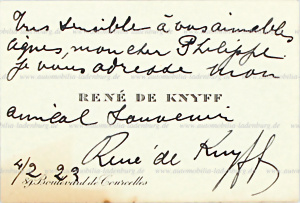 Très sensible à vos aimables
lignes, mon cher Philippe.
je vous adresse mon
RENÉ DE KNYFF
amical souvenir
René de Knyff
4/2 23
89 Boulevard de Courcelles